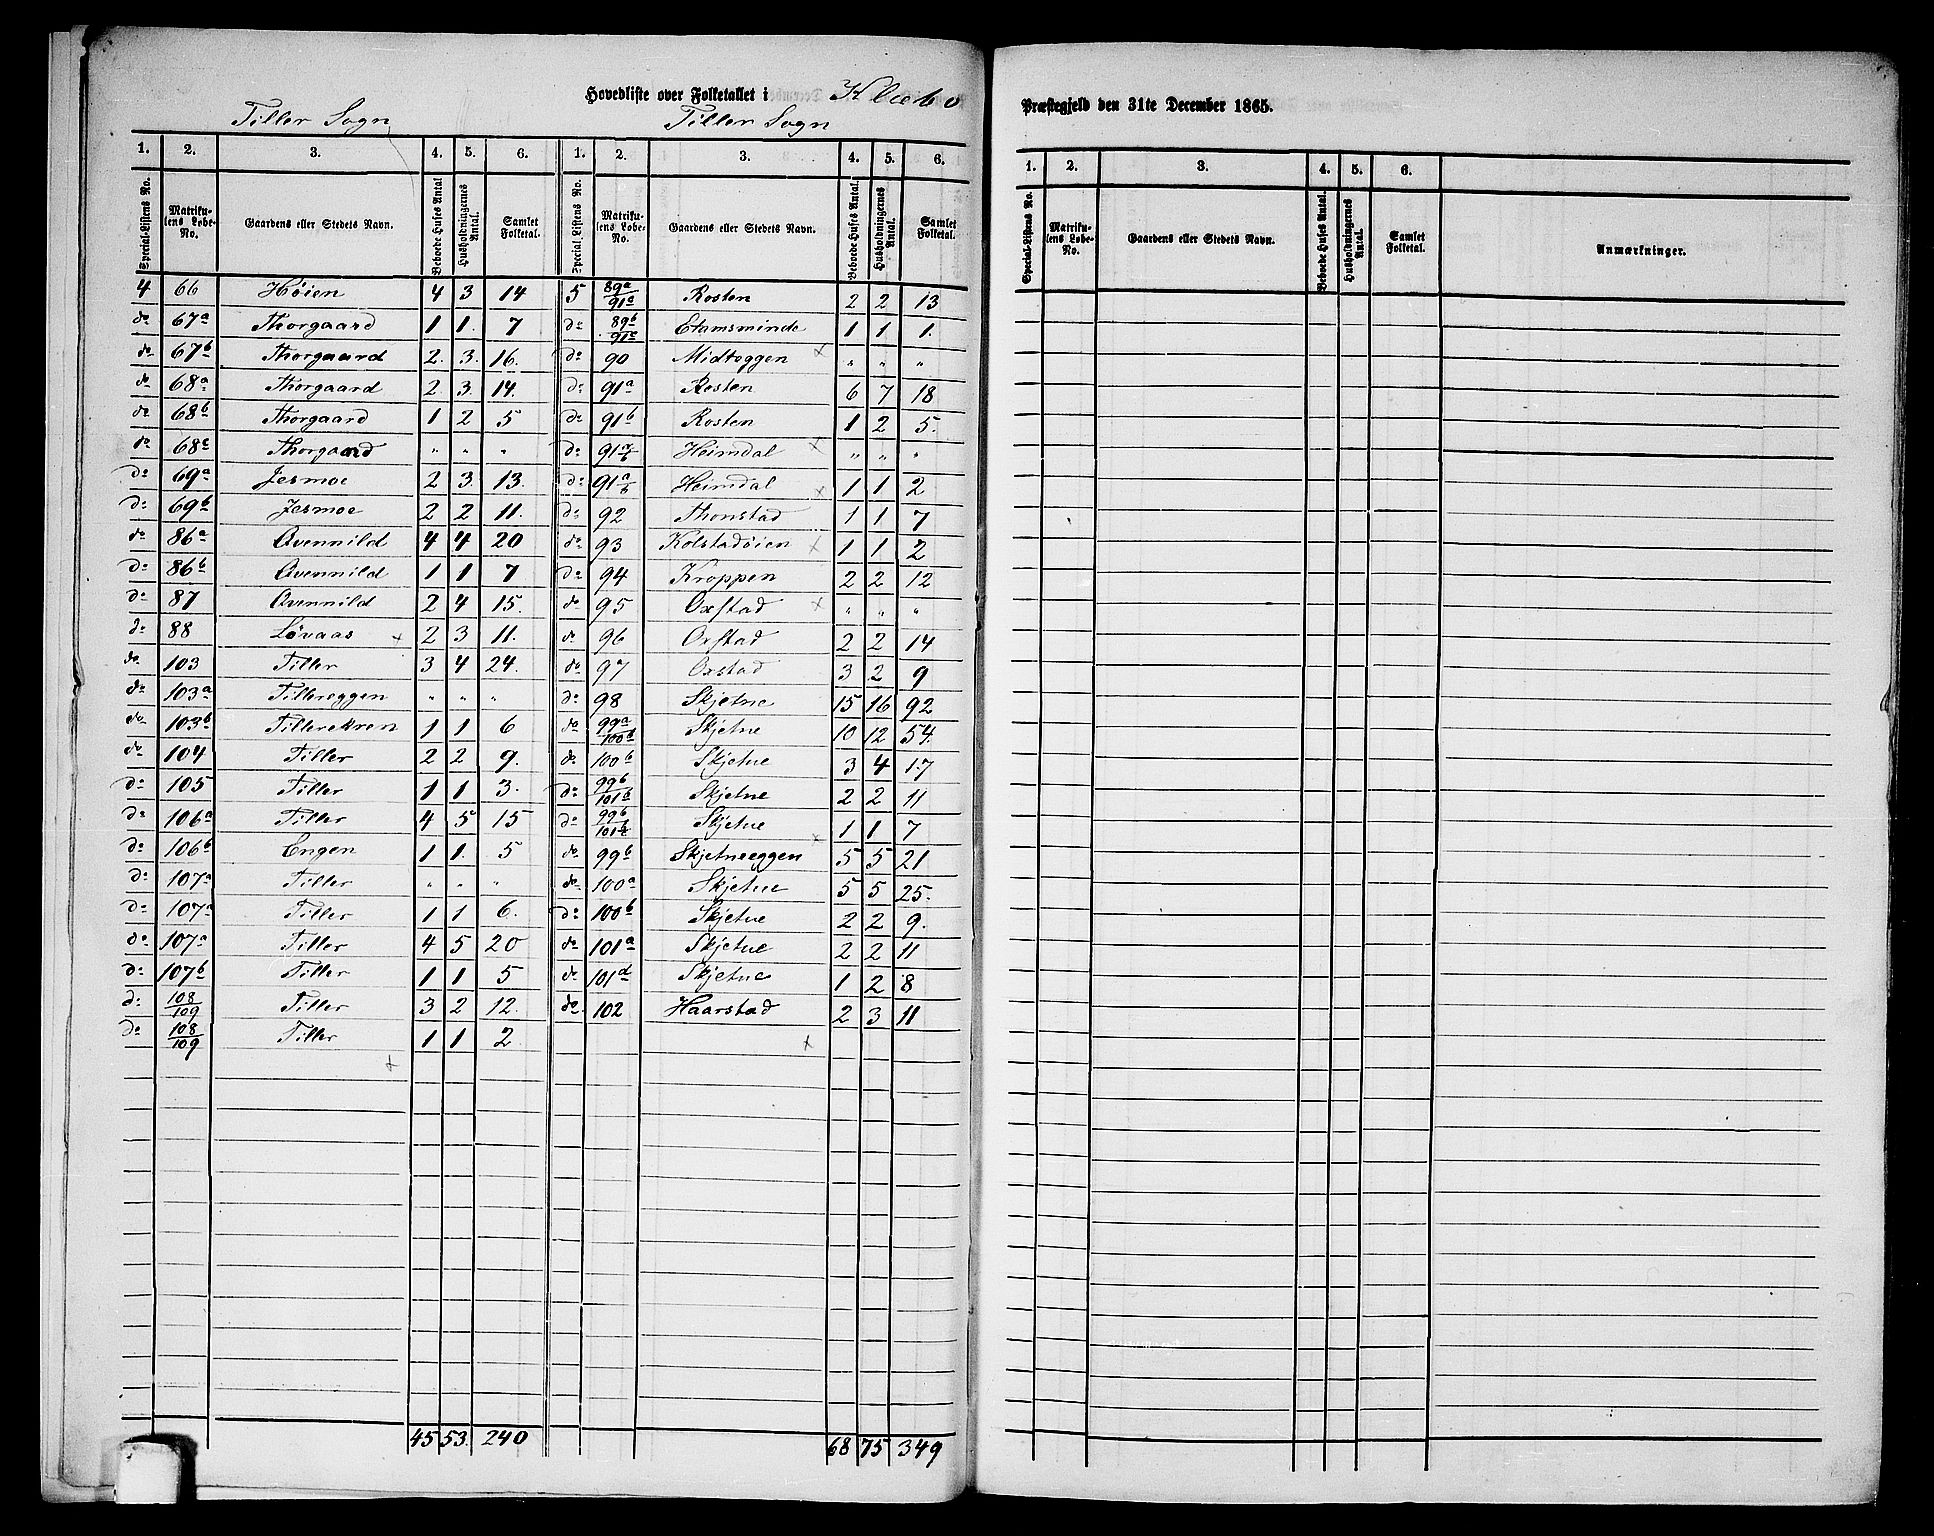 Hovedliste over Folketallet i Klæbo Præstegjeld den 31te December 1865.
Tiller Sogn Tiller Sogn
1. 2. 3. 4. 5. 6. 1. 2. 3. 4. 5. 6. 1. 2. 3. 4. 5. 6.
Special-Listens No. Matrikulens Løbe-No. Gaardens eller Stedets Navn. Beboede Huses Antal Husholdningernes Antal. Samlet Folketal. Special-Listens No. Matrikulens Løbe-No. Gaardens eller Stedets Navn. Beboede Huses Antal. Husholdningernes Antal. Samlet Folketal. Special-Listens No. Matrikulens Løbe-No. Gaardens eller Stedets Navn. Beboede Huses Antal. Husholdningernes Antal. Samlet Folketal. Anmærkninger.
4 66 Høien 4 3 14 5 89a/91a Rosten 2 2 13
do 67a Thorgaard 1 1. 7 do 89b/91c Etamsminde 1 1 1.
do 67b Thorgaard 2. 3. 16. do 90 Midteggen x " " "
do 68a Thorgaard 2. 3. 14. do 91a Rosten 6 7 18
do 68b Thorgaard 1 2 5 do 91b Rosten 1 2 5.
do 68c Thorgaard " " " do 91a/b Heimdal x " " "
do 69a Jesmoe 2 3. 13. do 91a/b Heimdal x 1 1 2
do 69b Jesmoe 2 2 11. do 92 Thonstad 1 1 7
do 86a Qvennild 4 4 20 do 93 Kolstadøien x 1 1 2
do 86b Qvennild 1 1 7 do 94 Kroppen 2 2 12
do 87 Qvennild 2 4 15. do 95 Oxstad x " " "
do 88 Løvaas x 2 3 11. do 96 Oxstad 2 2 14
do 103 Tiller 3 4 24. do 97 Oxstad 3 2 9
do 103a Tillereggen " " " do 98 Skjetne 15 16 92
do 103b Tillerekren 1 1 6 do 99a/100b Skjetne 10 12 54.
do 104 Tiller 2 2 9. do 100b Skjetne 3 4 17
do 105 Tiller 1 1 3. do 99b/101b Skjetne 2 2 11
do 106a Tiller 4 5 15 do 99b/101b Skjetne 1 1 7
do 106b Engen 1 1. 5 do 99b Skjetneeggen x 5 5 21
do 107a Tiller " " " do 100a Skjetne 5 5 25.
do 107a Tiller 1 1 6. do 100b Skjetne 2 2 9.
do 107a Tiller 4 5 20 do 101a Skjetne 2 2 11
do 107b Tiller 1 1 5 do 101d Skjetne 1 2 8
do 108/109 Tiller 3 2 12. do 102 Haarstad 2 3 11
do 108/109 Tiller 1 1 2 x
x
45 53. 240 68 75 349